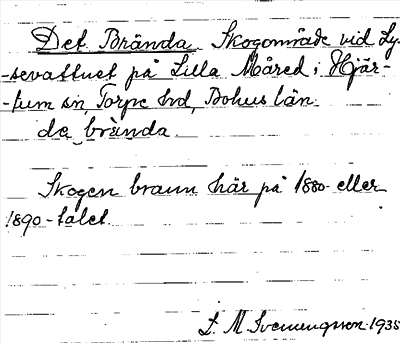 Det Brända. Skogområde vid Ly-
-sevattnet på Lilla Måred i Hjär-
-tum sn, Torpe hd, Bohus län.
da brànda.
Skogen brann här på 1880- eller
1890-talet.
L. M. Svenungsson 1935